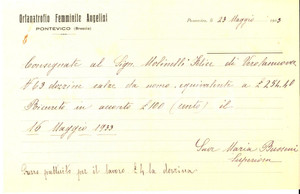 Orfanatrofio Femminile Angelini
PONTEVICO (Brescia)
23 Maggio 1933
Consegnate al Sign. Molinelli di Verolanuova
N° 63 dozzine calze da uomo, equivalente a £ 252.40
Ricevute in acconto £ 100 (cento) il
16 Maggio 1933
Suor Maria
Superiora
per il lavoro £ 4 la dozzina